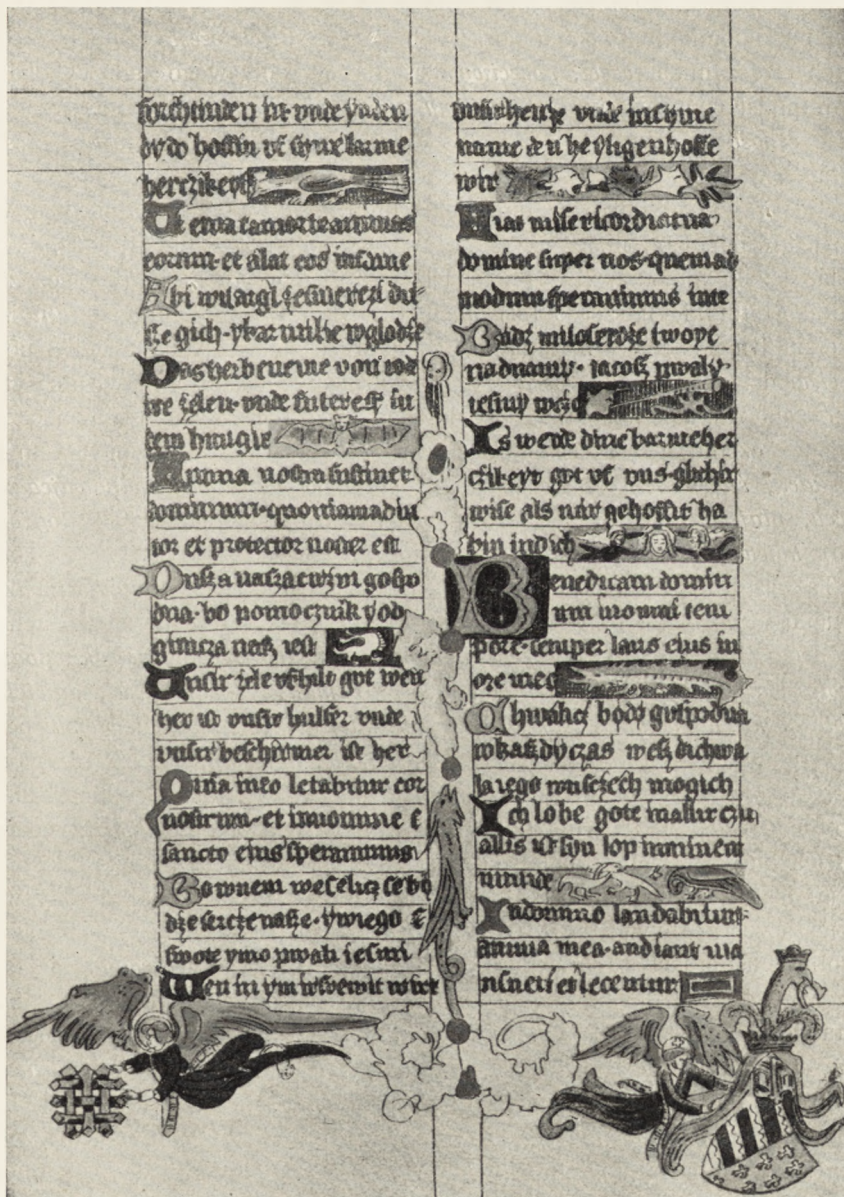 vnde yn den
dy do hoffin vf
herczikeyt
Ut eruat a morte animas
eorum·et alat eos in fame
Abi witargl se smerczi du
sze gich·ykarmil ie wglodze
Das her beneme von tode
ire zelen·vnde futer esy in
dem hungir
Anima nostra sustinet
dominum·quoniam adiu
tor et protector noster est
Dusza nasza czwyni gospo
dna·bo pomocznik y od
gimcza nasz iest
Unsir zele vf hild got wen
her ist vnsir hulfer vnde
vnsir beschirmer ist her
Quia in eo letabitur cor
nostrum·et in nomine
sancto eius sperauimus
Bo w nem weselicz se bo
dze sercze nasze·ywiego
swote ymo pwali iesmi
Wen in ym irfrewit wirt
vnsir hercze vnde in syme
name den heyligen hoffe
wir
Fiat misericordia tua
domine super nos·quemad
modum sperauimus in te
Bodz miloserdze twoye
nadnamy·iacosz pwaly
iesmy w cze
Is werde dine barmeher
czikeyt got vf vns·glicher
wise als wir gehoffit ha
bin in dich
Benedicam domin
um in omni tem
pore·semper laus eius in
ore meo
Chwalicz bodo gospodna
wkaszdy czas wesz di chwa
la iego w uszczech mogich
Ich lobe gote in allir czu
allis ist syn lop in minem
munde
In domino laudabitur
anima mea·audiant ma
nsueti et letentur